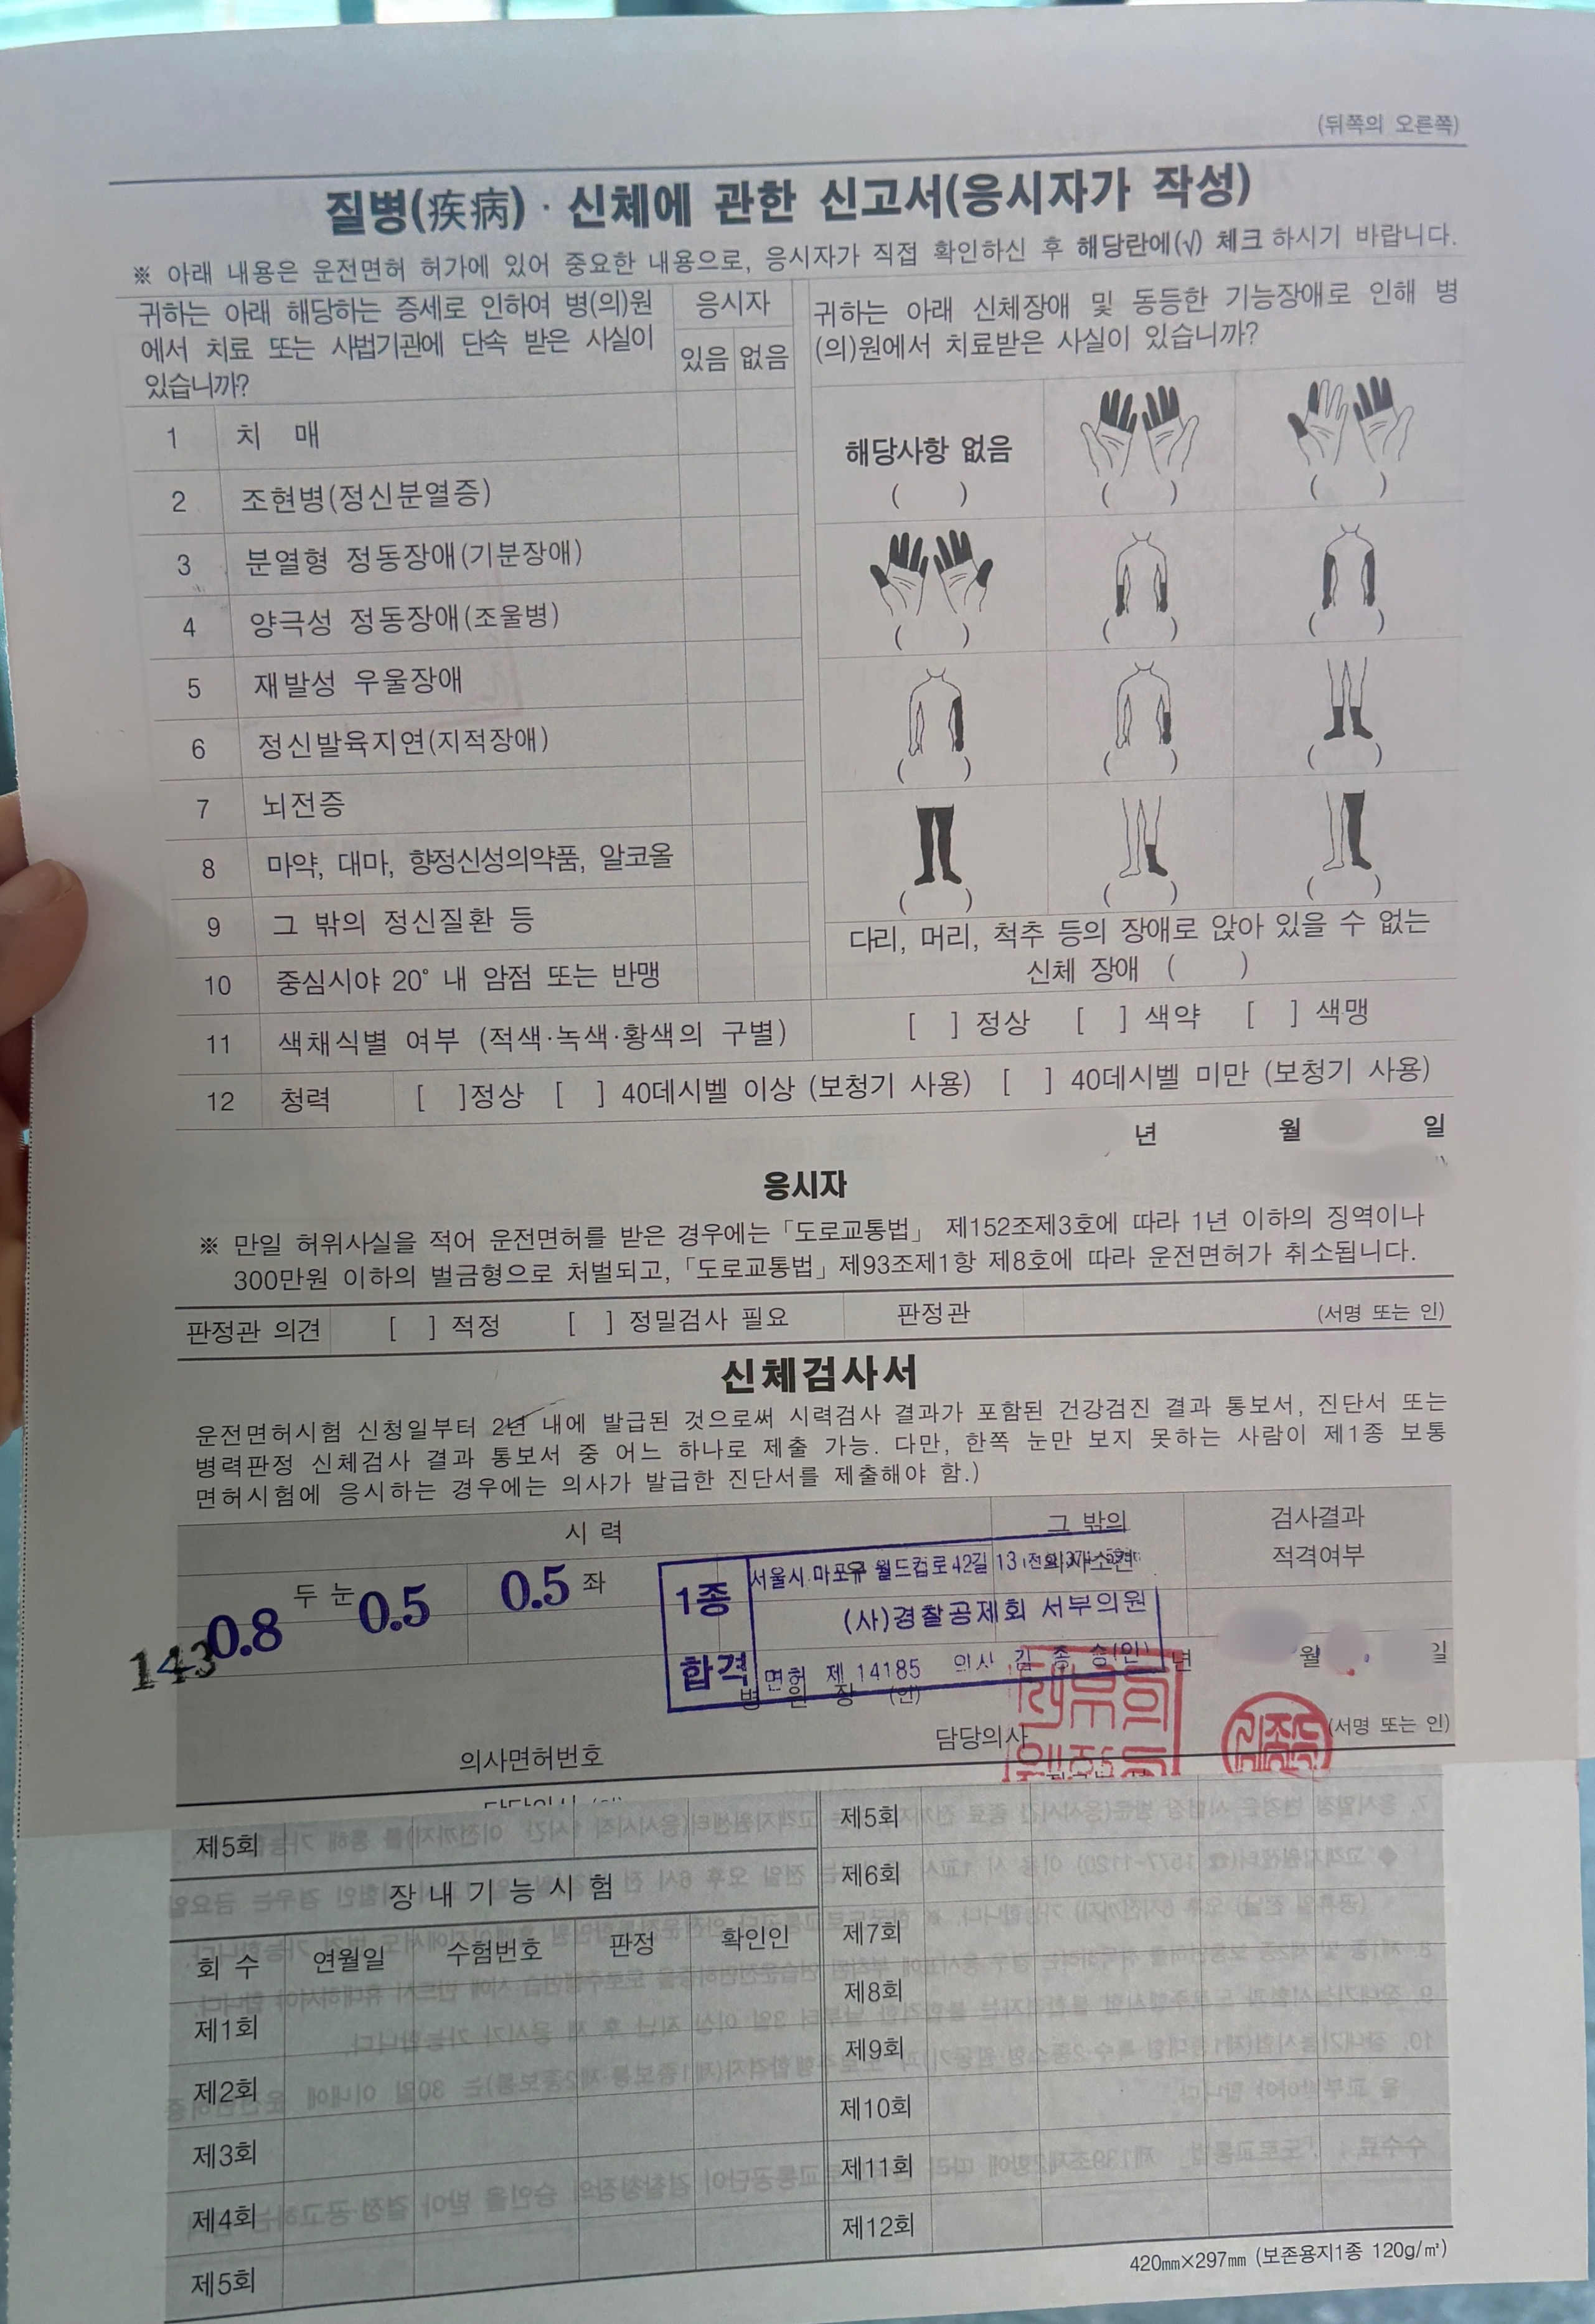 (뒤쪽의 오른쪽)
질병(疾病)·신체에 관한 신고서(응시자가 작성)
※ 아래 내용은 운전면허 허가에 있어 중요한 내용으로, 응시자가 직접 확인하신 후 해당란에(√) 체크 하시기 바랍니다.
귀하는 아래 해당하는 증세로 인하여 병(의)원
에서 치료 또는 사법기관에 단속 받은 사실이
있습니까?
응시자
있음 없음
귀하는 아래 신체장애 및 동등한 기능장애로 인해 병
(의)원에서 치료받은 사실이 있습니까?
1 치 매
2 조현병(정신분열증)
3 분열형 정동장애(기분장애)
4 양극성 정동장애(조울병)
5 재발성 우울장애
6 정신발육지연(지적장애)
7 뇌전증
8 마약, 대마, 향정신성의약품, 알코올
9 그 밖의 정신질환 등
10 중심시야 20° 내 암점 또는 반맹
해당사항 없음
( ) ( ) ( )
( ) ( ) ( )
( ) ( ) ( )
( ) ( ) ( )
다리, 머리, 척추 등의 장애로 앉아 있을 수 없는
신체 장애 ( )
11 색채식별 여부 (적색·녹색·황색의 구별) [ ] 정상 [ ] 색약 [ ] 색맹
12 청력 [ ]정상 [ ] 40데시벨 이상 (보청기 사용) [ ] 40데시벨 미만 (보청기 사용)
년 월 일
응시자
※ 만일 허위사실을 적어 운전면허를 받은 경우에는 「도로교통법」 제152조제3호에 따라 1년 이하의 징역이나
300만원 이하의 벌금형으로 처벌되고, 「도로교통법」 제93조제1항 제8호에 따라 운전면허가 취소됩니다.
판정관 의견 [ ] 적정 [ ] 정밀검사 필요 판정관 (서명 또는 인)
신체검사서
운전면허시험 신청일부터 2년 내에 발급된 것으로써 시력검사 결과가 포함된 건강검진 결과 통보서, 진단서 또는
병력판정 신체검사 결과 통보서 중 어느 하나로 제출 가능. 다만, 한쪽 눈만 보지 못하는 사람이 제1종 보통
면허시험에 응시하는 경우에는 의사가 발급한 진단서를 제출해야 함.)
시 력
그 밖의
의사소견
검사결과
적격여부
두 눈
좌
0.8 0.5 0.5
143
1종
합격
서울시 마포구 월드컵로42길 13
(사)경찰공제회 서부의원
면허 제 14185 의사 김 종 승(인)
병 원 장 (인)
년 월 일
담당의사 (서명 또는 인)
의사면허번호
제5회
장 내 기 능 시 험
회 수 연월일 수험번호 판정 확인인
제1회
제2회
제3회
제4회
제5회
제5회
제6회
제7회
제8회
제9회
제10회
제11회
제12회
420㎜×297㎜ (보존용지1종 120g/㎡)